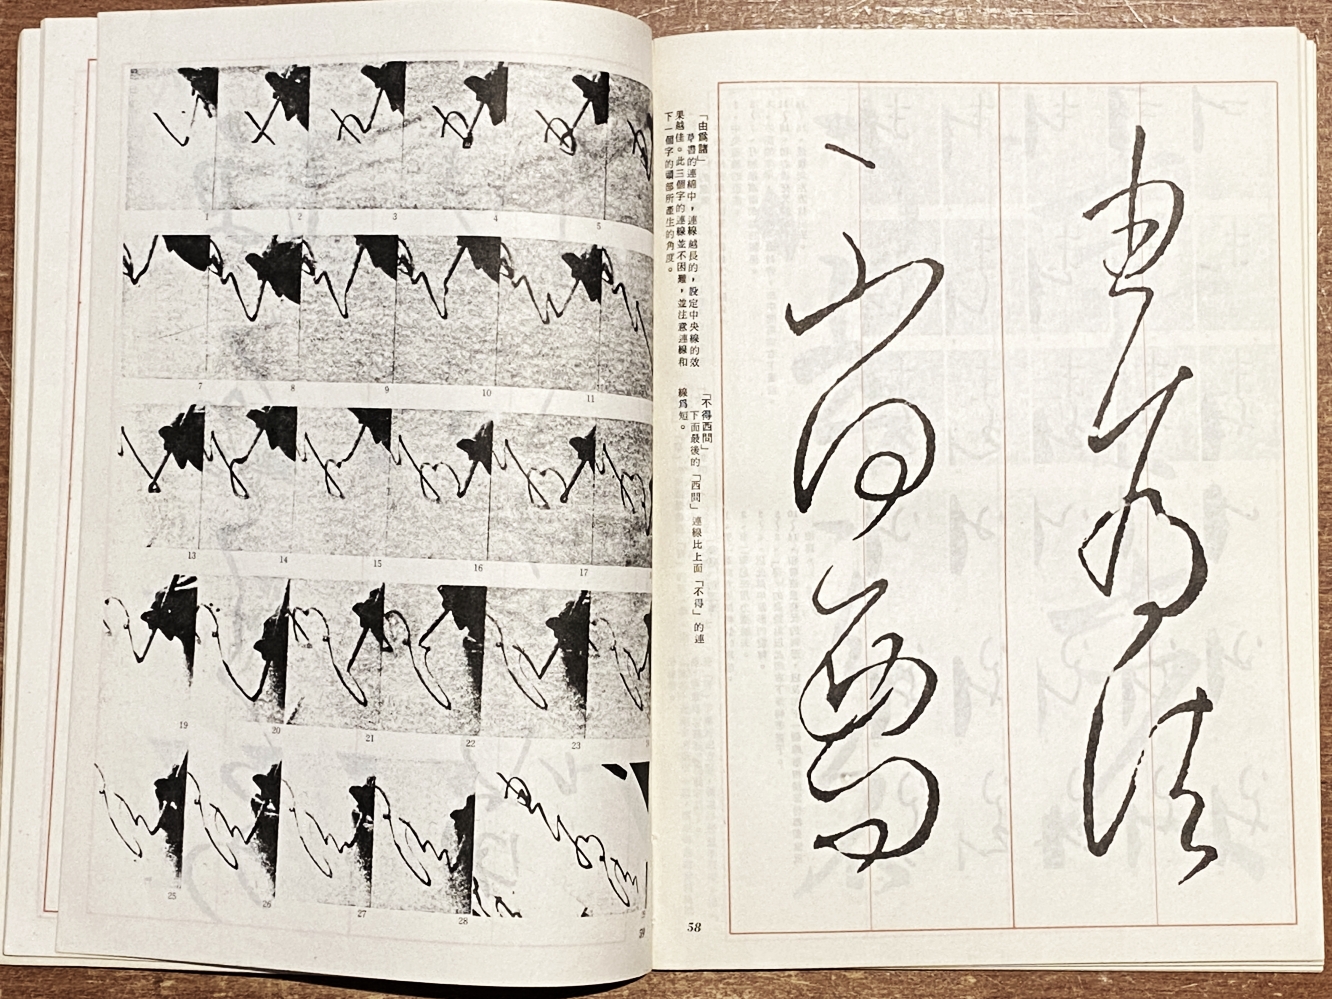 由爲諸
不得西問
「由爲諸」
草書的連綿中，連線越長的，設定中央線的效
果越佳。此三個字的連線並不困難，並注意連線和
下一個字的頭部所產生的角度。
「不得西問」
下面最後的「西問」連線比上面「不得」的連
線爲短。
58
1 2 3 4 5
7 8 9 10 11
13 14 15 16 17
19 20 21 22 23
25 26 27 28
59